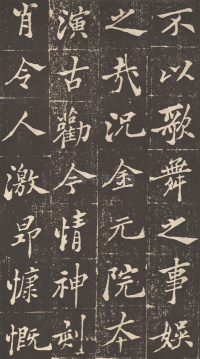 不以歌舞之事娱
之哉況金元院本
演古勸今情神刻
肖令人激昂慷慨